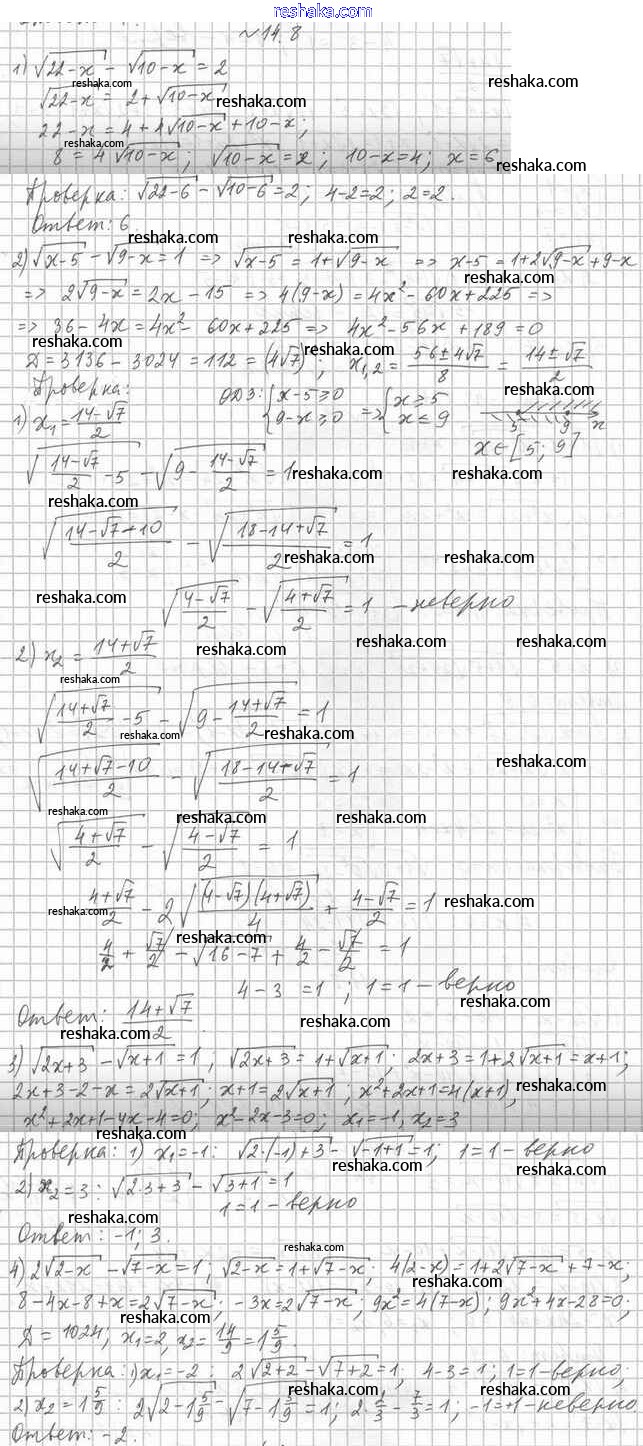 reshaka.com
№14.8
1) √(22-x) - √(10-x) = 2
√(22-x) = 2 + √(10-x)
22-x = 4 + 4√(10-x) + 10-x;
8 = 4√(10-x); √(10-x) = 2; 10-x=4; x=6
Проверка: √(22-6) - √(10-6) = 2; 4-2=2; 2=2.
Ответ: 6.
2) √(x-5) - √(9-x) = 1 => √(x-5) = 1+√(9-x) => x-5 = 1+2√(9-x)+9-x
=> 2√(9-x) = 2x-15 => 4(9-x) = 4x²-60x+225 =>
=> 36-4x = 4x²-60x+225 => 4x²-56x+189=0
Д = 3136-3024 = 112 = (4√7)²; x₁,₂ = (56±4√7)/8 = (14±√7)/2
Проверка: ОДЗ: {x-5≥0 {9-x≥0 => {x≥5 {x≤9 5 9 x
1) x₁ = (14-√7)/2 x∈[5; 9]
√((14-√7)/2 - 5) - √(9 - (14-√7)/2) = 1
√((14-√7-10)/2) - √((18-14+√7)/2) = 1
√((4-√7)/2) - √((4+√7)/2) = 1 - неверно
2) x₂ = (14+√7)/2
√((14+√7)/2 - 5) - √(9 - (14+√7)/2) = 1
√((14+√7-10)/2) - √((18-14-√7)/2) = 1
√((4+√7)/2) - √((4-√7)/2) = 1
(4+√7)/2 - 2√((4-√7)(4+√7)/4) + (4-√7)/2 = 1
4/2 + √7/2 - √(16-7) + 4/2 - √7/2 = 1
4-3 = 1; 1=1 - верно
Ответ: (14+√7)/2
3) √(2x+3) - √(x+1) = 1; √(2x+3) = 1+√(x+1); 2x+3 = 1+2√(x+1) = x+1;
2x+3-2-x = 2√(x+1); x+1 = 2√(x+1); x²+2x+1 = 4(x+1);
x²+2x+1-4x-4=0; x²-2x-3=0; x₁=-1, x₂=3
Проверка: 1) x₁=-1: √(2·(-1)+3) - √(-1+1) = 1; 1=1 - верно
2) x₂=3: √(2·3+3) - √(3+1) = 1
1=1 - верно
Ответ: -1; 3.
4) 2√(2-x) - √(7-x) = 1; √(2-x) = 1+√(7-x); 4(2-x) = 1+2√(7-x)+7-x;
8-4x-8+x = 2√(7-x); -3x = 2√(7-x); 9x² = 4(7-x); 9x²+4x-28=0;
Д = 1024; x₁=2, x₂ = 14/9 = 1 5/9.
Проверка: 1) x₁=-2: 2√(2+2) - √(7+2) = 1; 4-3=1; 1=1 - верно;
2) x₂ = 1 5/9: 2√(2-1 5/9) - √(7-1 5/9) = 1; 2·2/3 - 7/3 = 1; -1=1 - неверно.
Ответ: -2.